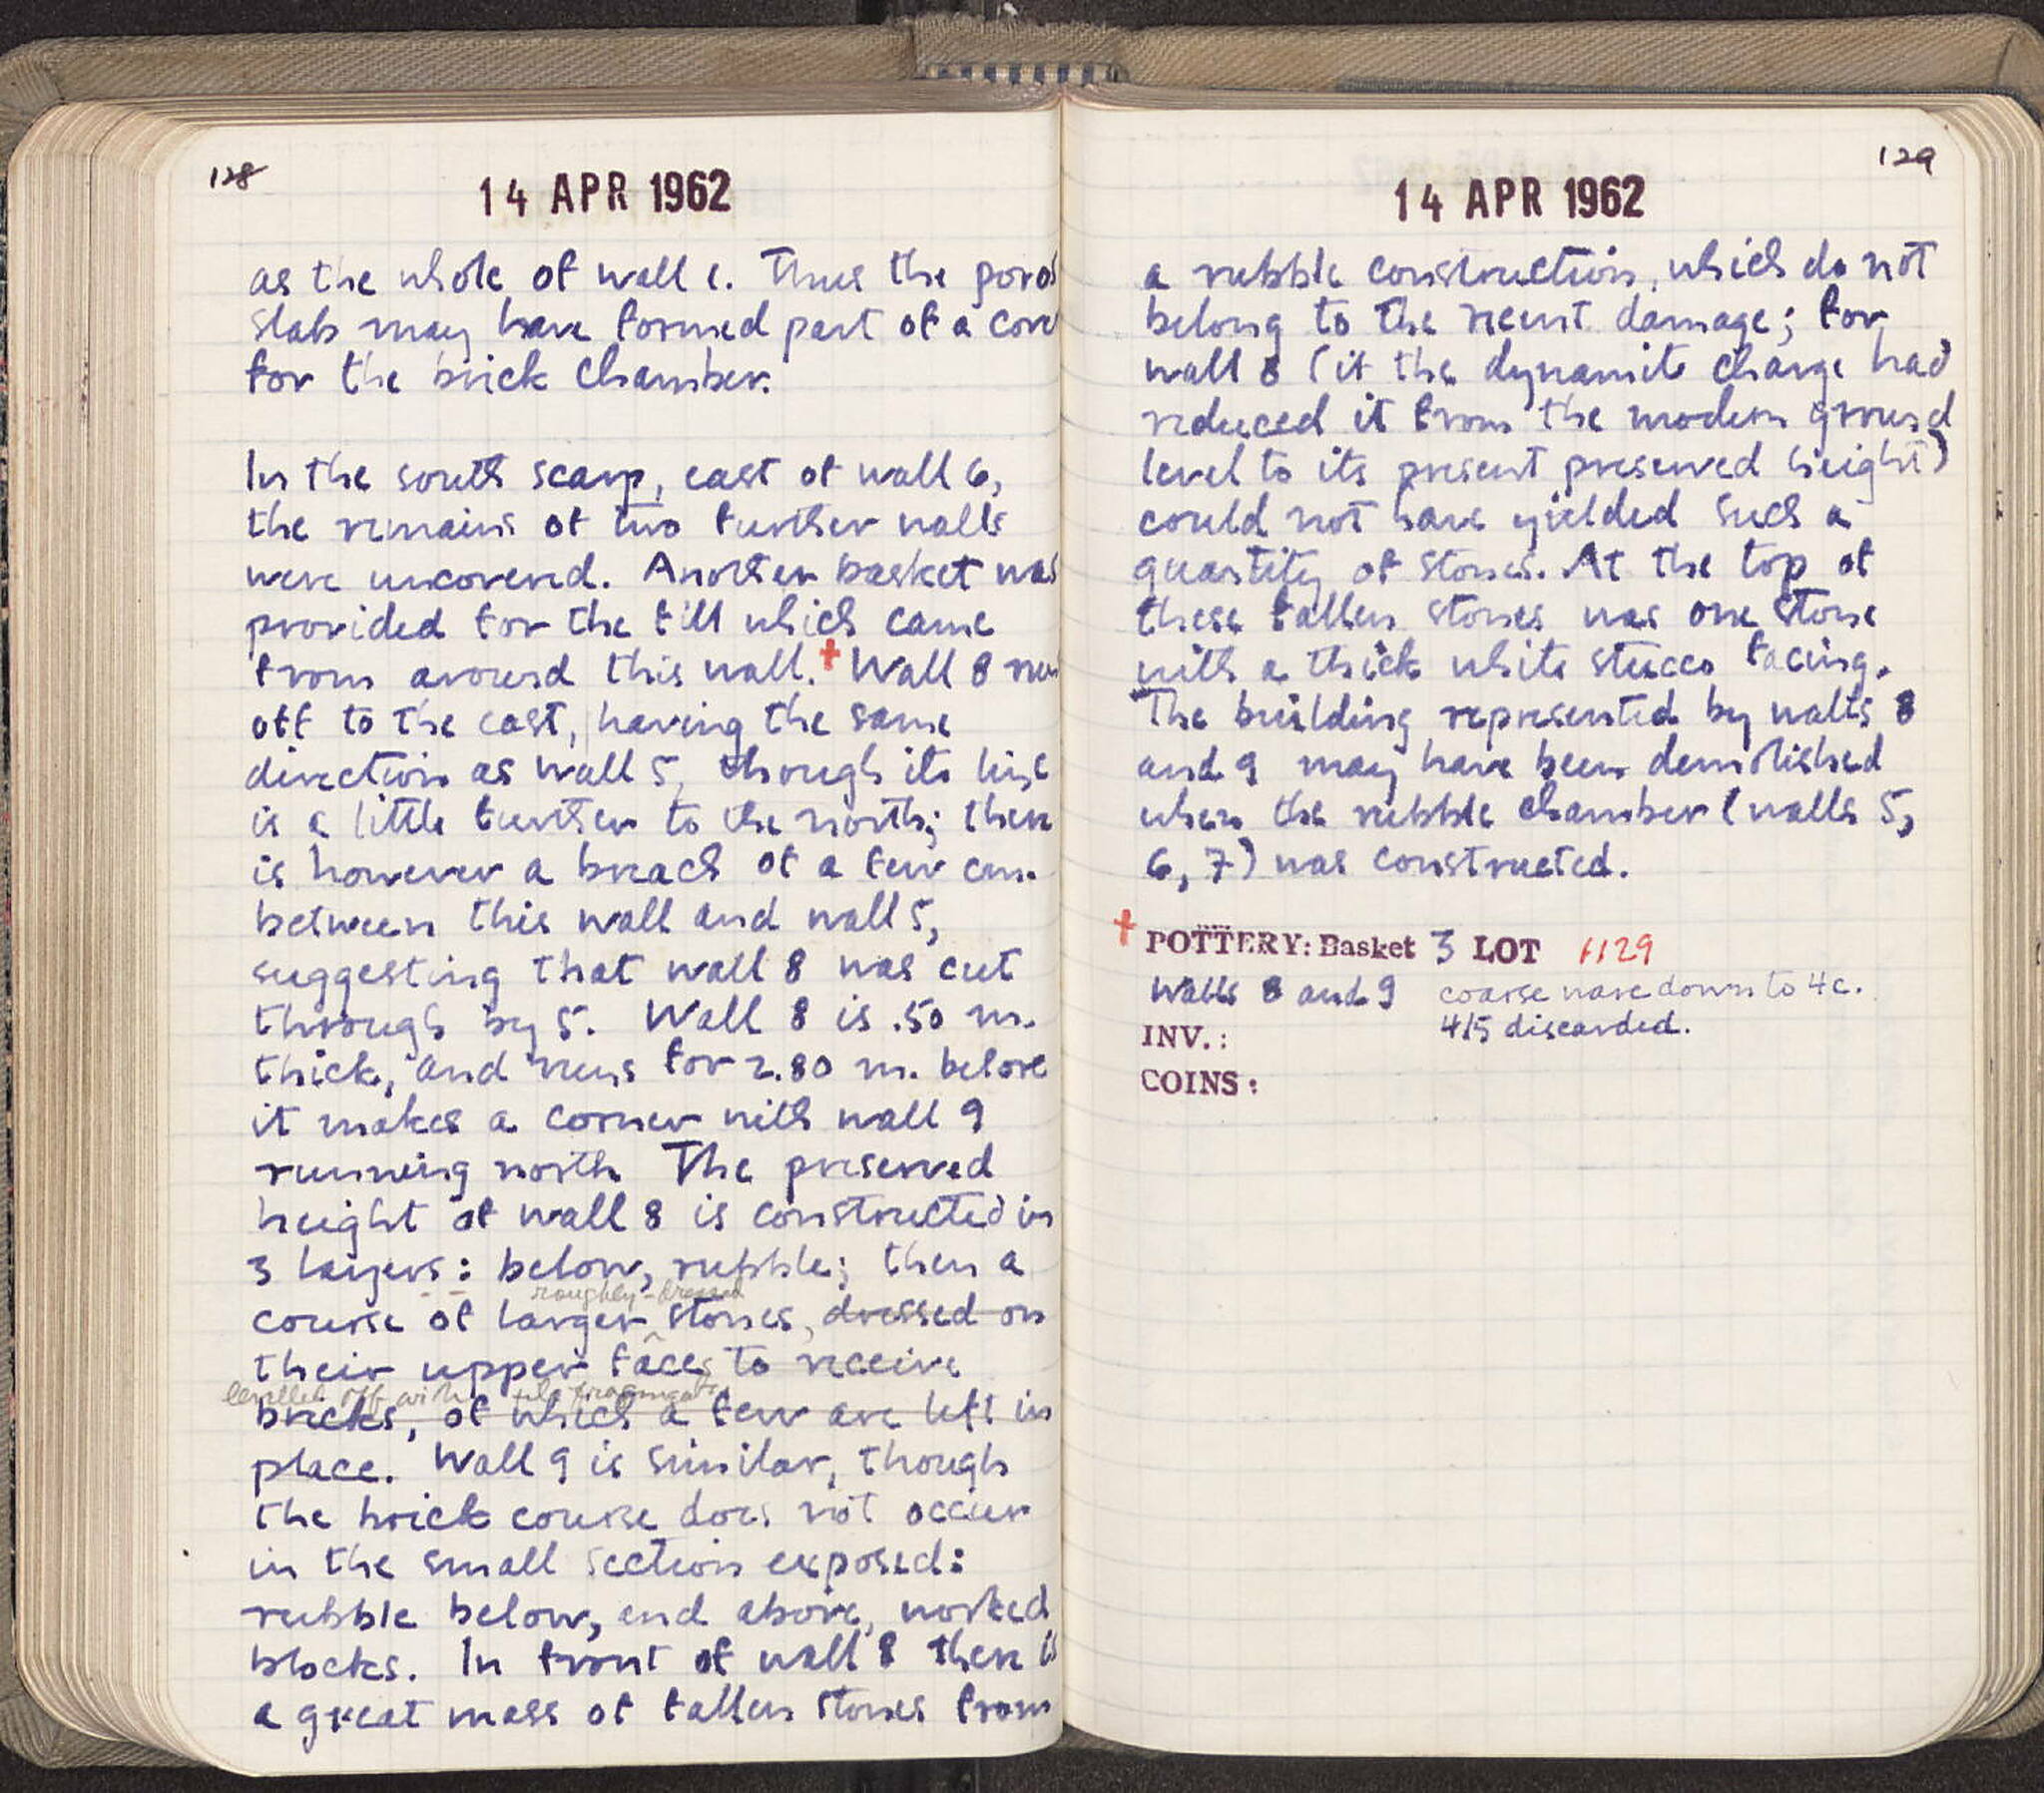 128
14 APR 1962
as the whole of wall 1. Thus the poros
slab may have formed part of a cover
for the brick chamber.
In the south scarp, east of wall 6,
the remains of two further walls
were uncovered. Another basket was
provided for the fill which came
from around this wall.+ Wall 8 runs
off to the east, having the same
direction as wall 5, though its line
is a little further to the north; there
is however a breach of a few cm.
between this wall and wall 5,
suggesting that wall 8 was cut
through by 5. Wall 8 is .50 m.
thick, and runs for 2.80 m. before
it makes a corner with wall 9
running north. The preserved
height of wall 8 is constructed in
3 layers: below, rubble; then a
roughly-dressed
course of larger ^ stones, dressed on
their upper faces to receive
levelled off with tile fragments,
bricks, of which a few are left in
place. Wall 9 is similar, though
the brick course does not occur
in the small section exposed:
rubble below, and above, worked
blocks. In front of wall 8 there is
a great mass of fallen stones from
129
14 APR 1962
a rubble construction, which do not
belong to the recent damage; for
wall 8 (if the dynamite charge had
reduced it from the modern ground
level to its present preserved height)
could not have yielded such a
quantity of stones. At the top of
these fallen stones was one stone
with a thick white stucco facing.
The building represented by walls 8
and 9 may have been demolished
when the rubble chamber (walls 5,
6, 7) was constructed.
+ POTTERY: Basket 3 LOT 6129
Walls 8 and 9 coarse ware down to 4c.
4/5 discarded.
INV.:
COINS: